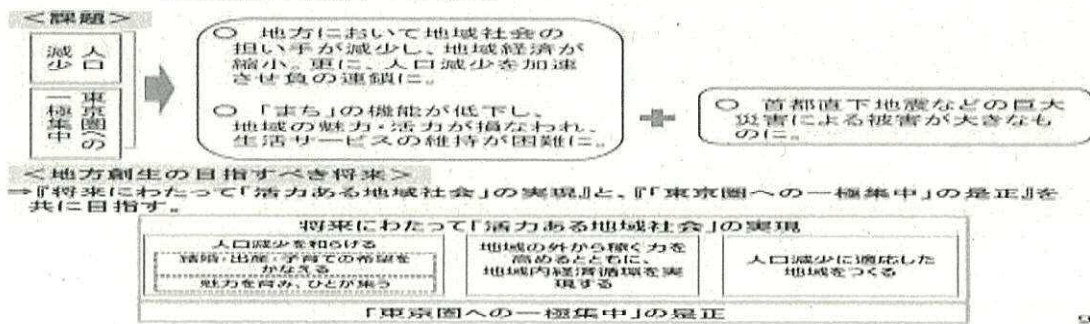 <課題>
人口
減少
東京圏への
一極集中
○ 地方において地域社会の
担い手が減少し、地域経済が
縮小。更に、人口減少を加速
させ負の連鎖に。
○ 「まち」の機能が低下し、
地域の魅力・活力が損なわれ、
生活サービスの維持が困難に。
○ 首都直下地震などの巨大
災害による被害が大きなも
のに。
<地方創生の目指すべき将来>
⇒『将来にわたって「活力ある地域社会」の実現』と、『「東京圏への一極集中」の是正』を
共に目指す。
将来にわたって「活力ある地域社会」の実現
人口減少を和らげる
結婚・出産・子育ての希望を
かなえる
魅力を育み、ひとが集う
地域の外から稼ぐ力を
高めるとともに、
地域内経済循環を実
現する
人口減少に適応した
地域をつくる
「東京圏への一極集中」の是正